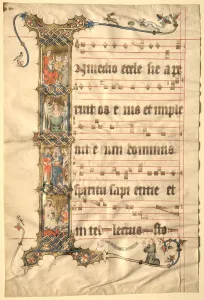 N medio eccle sie ape
ruit os e ius et imple
uit e um dominus
spiritu sapi entie et
in tel lectus sto